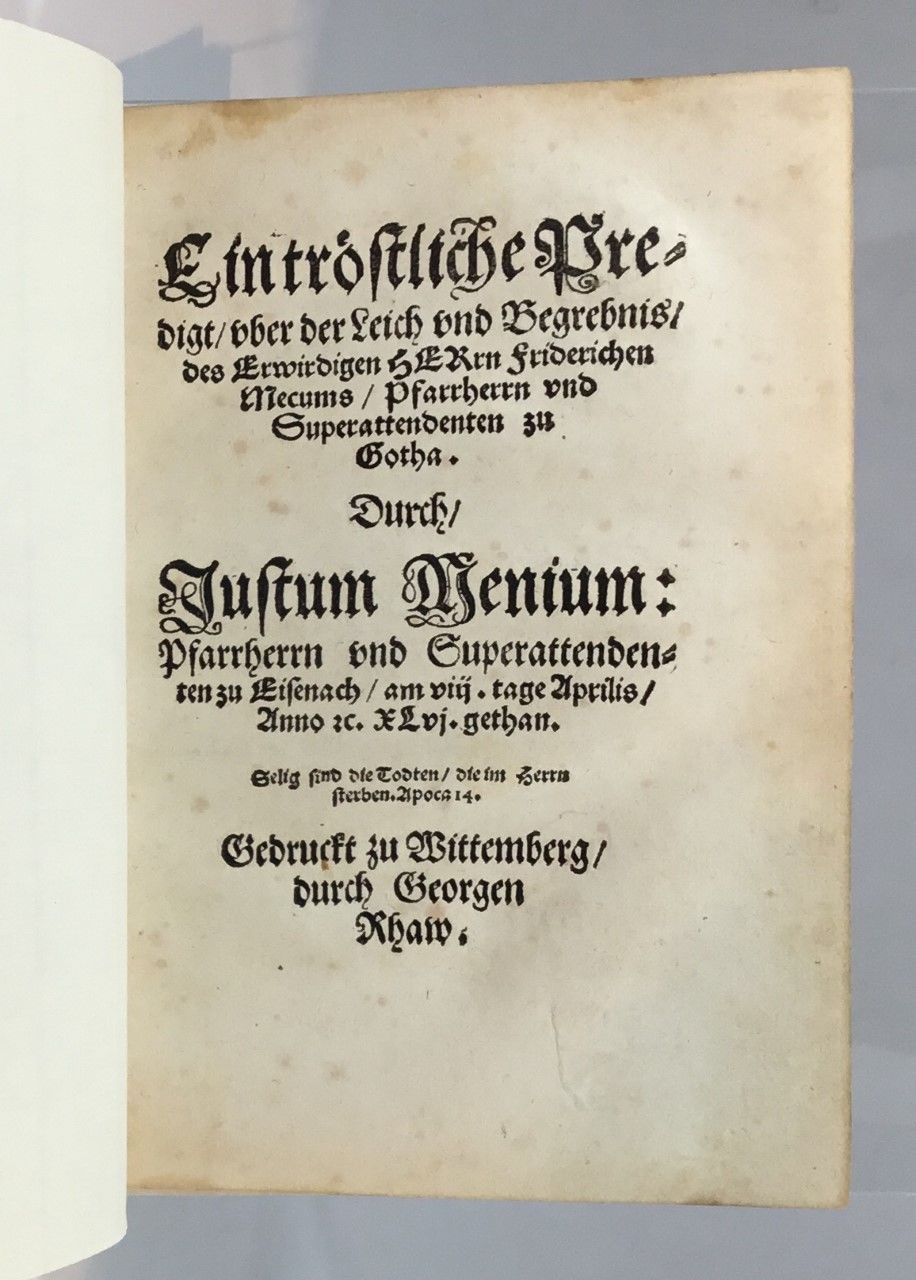 Ein tröſtliche Pre⸗
digt/ vber der Leich vnd Begrebnis/
des Erwirdigen HERrn Friderichen
Mecums / Pfarrherrn vnd
Superattendenten zu
Gotha.
Durch/
Juſtum Menium:
Pfarrherrn vnd Superattenden⸗
ten zu Eiſenach / am viij. tage Aprilis/
Anno ꝛc. XLvj. gethan.
Selig ſind die Todten/ die im Herrn
ſterben. Apoca 14.
Gedruckt zu Wittemberg/
durch Georgen
Rhaw.